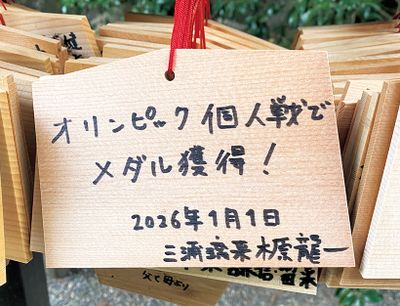 オリンピック個人戦で
メダル獲得！
2026年1月1日
三浦璃来 木原龍一
父と母より